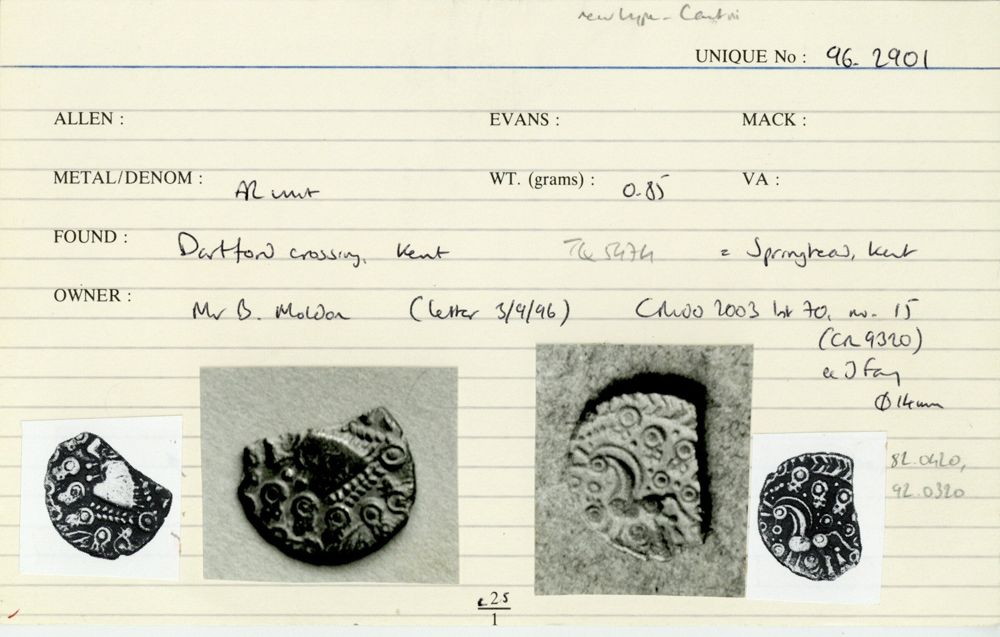 new type - Cantii
UNIQUE No : 96. 2901
ALLEN : EVANS : MACK :
METAL/DENOM : AR unit WT. (grams) : 0.85 VA :
FOUND : Dartford crossing, Kent TQ 5474 = Springhead, Kent
OWNER : Mr B. Moldon (letter 3/9/96) 2003 70, no. 15
(CR 9320)
ex J Fay
Φ 14mm
82.0420,
92.0320
c25
1